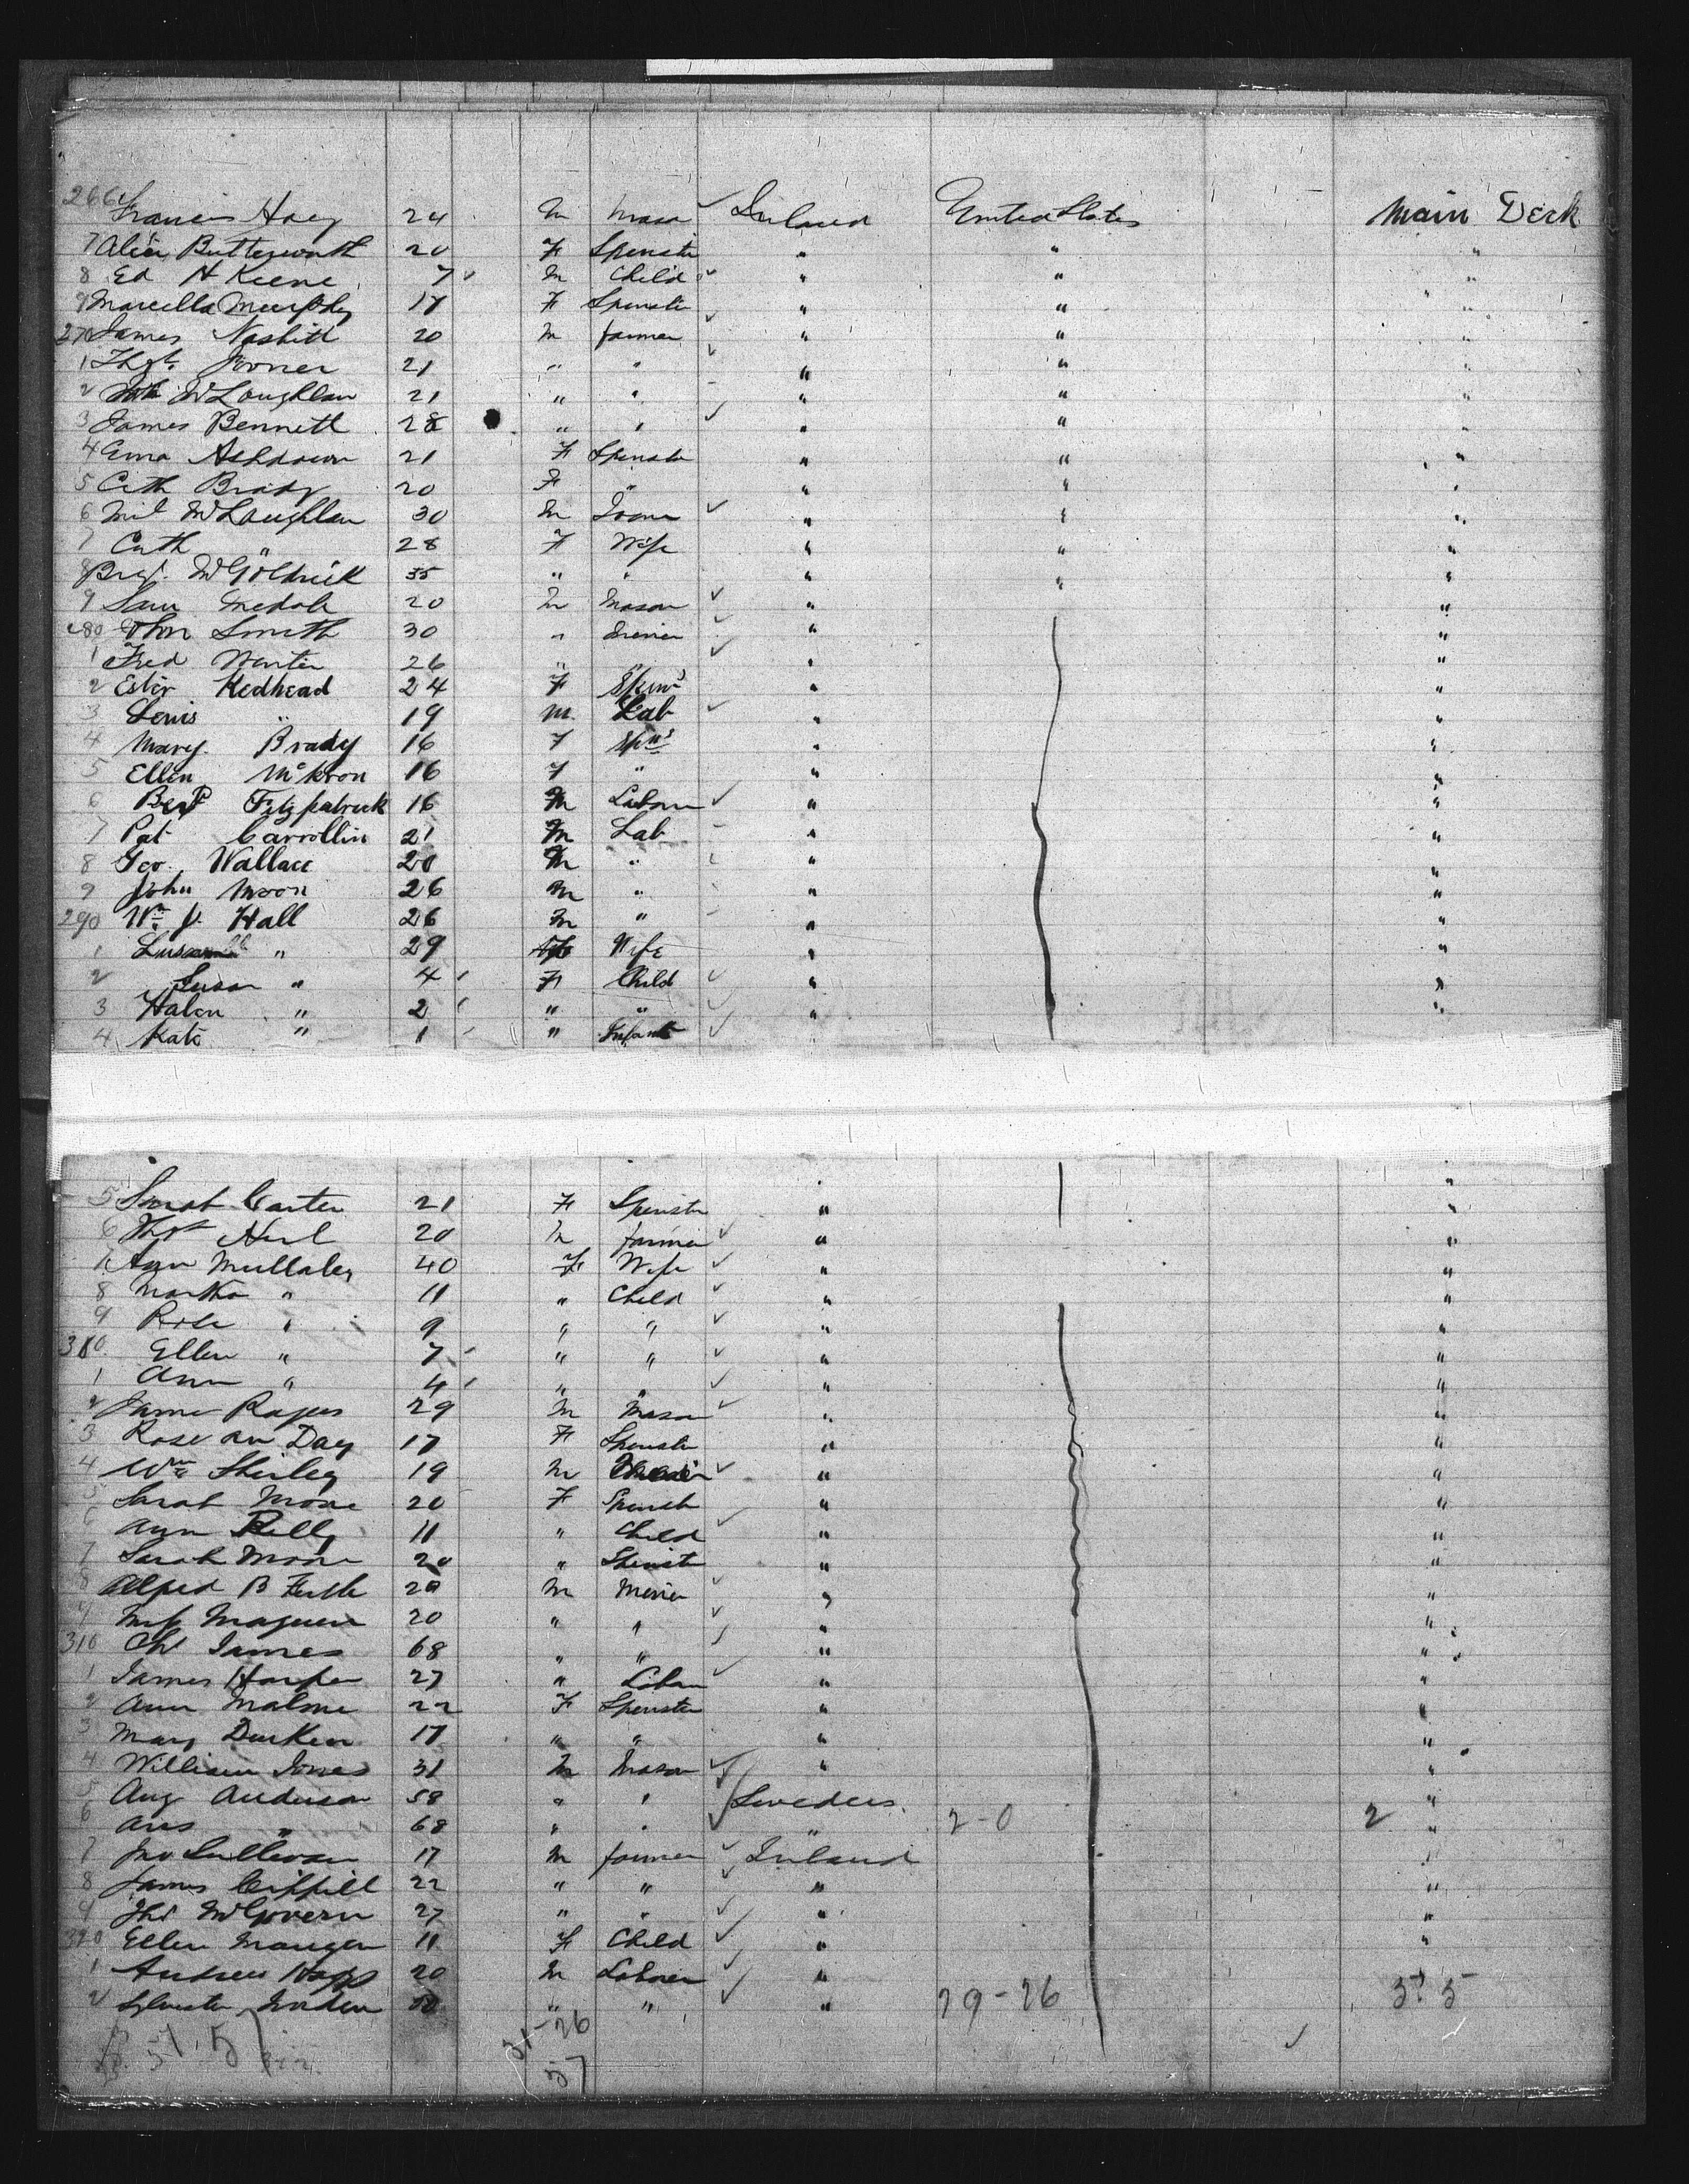 266 Francis Hoey 24 M Mason ✓ Ireland United States Main Deck
7 Alice Butterworth 20 F Spinster " " "
8 Ed H Keene 7 ✓ M Child ✓ " " "
9 Marcella Murphy 17 F Spinster " " "
270 James Nasbitt 20 M farmer ✓ " " "
1 21 " " ✓ " " "
2 McLoughlan 21 " " " " "
3 James Bennett 28 " " ✓ " " "
4 Ema Ashdown 21 F Spinster " " "
5 Cath Brady 20 F " " " "
6 McLoughlan 30 M ✓ " " "
7 Cath " 28 F Wife " " "
8 McGoldrick 35 " " " " "
9 Sam 20 M Mason ✓ " "
280 John Smith 30 " ✓ " "
1 Fred 26 " ✓ " "
2 Ester Redhead 24 F Spins " "
3 Lewis " 19 M. Lab ✓ " "
4 Mary Brady 16 F Spns " "
5 Ellen McKron 16 F " " "
6 Fitzpatrick 16 M Labour ✓ " "
7 Pat Carrollin 21 M Lab " "
8 Geo. Wallace 20 M " " "
9 John Moon 26 M " " "
290 Wm J. Hall 26 M " " "
1 " 29 Wife " "
2 Susan " 4 F Child ✓ " "
3 Halen " 2 " " ✓ " "
4 Kate " 1 " Infant ✓ "
5 Sarah Carter 21 F Spinster " "
6 20 M farmer ✓ " "
7 Ann Mullaley 40 F Wife ✓ " "
8 Martha " 11 " Child ✓ " "
9 Rose " 9 " " ✓ " "
300 Ellen " 7 " " ✓ " "
1 Ann " 4 " " ✓ " "
2 James 29 M Mason ✓ " "
3 Rose an Day 17 F Spinster " "
4 Wm Shirley 19 M ✓ " "
5 Sarah Moore 20 F Spinster " "
6 Ann Reilly 11 " Child ✓ " "
7 Sarah Moore 20 " Spinster " "
8 Alfred B 20 M ✓ " "
9 20 " " ✓ " "
310 James 68 " " ✓ " "
1 James Harper 27 " Labour ✓ " "
2 Ann Malone 22 F Spinster " "
3 Mary Durken 17 " " " "
4 William Jones 31 M Mason ✓ " "
5 Aug Anderson 58 " " ✓ Sweden "
6 " 68 " " ✓ " 2-0 2 "
7 Jno Sullivan 17 M farmer ✓ Ireland "
8 James 22 " " ✓ " "
9 McGovern 27 " " ✓ " "
320 Ellen Mangan 11 F Child ✓ " "
1 Andrew 20 M Laborer ✓ "
2 Sylvester " " ✓ " 29-26
31-26
57